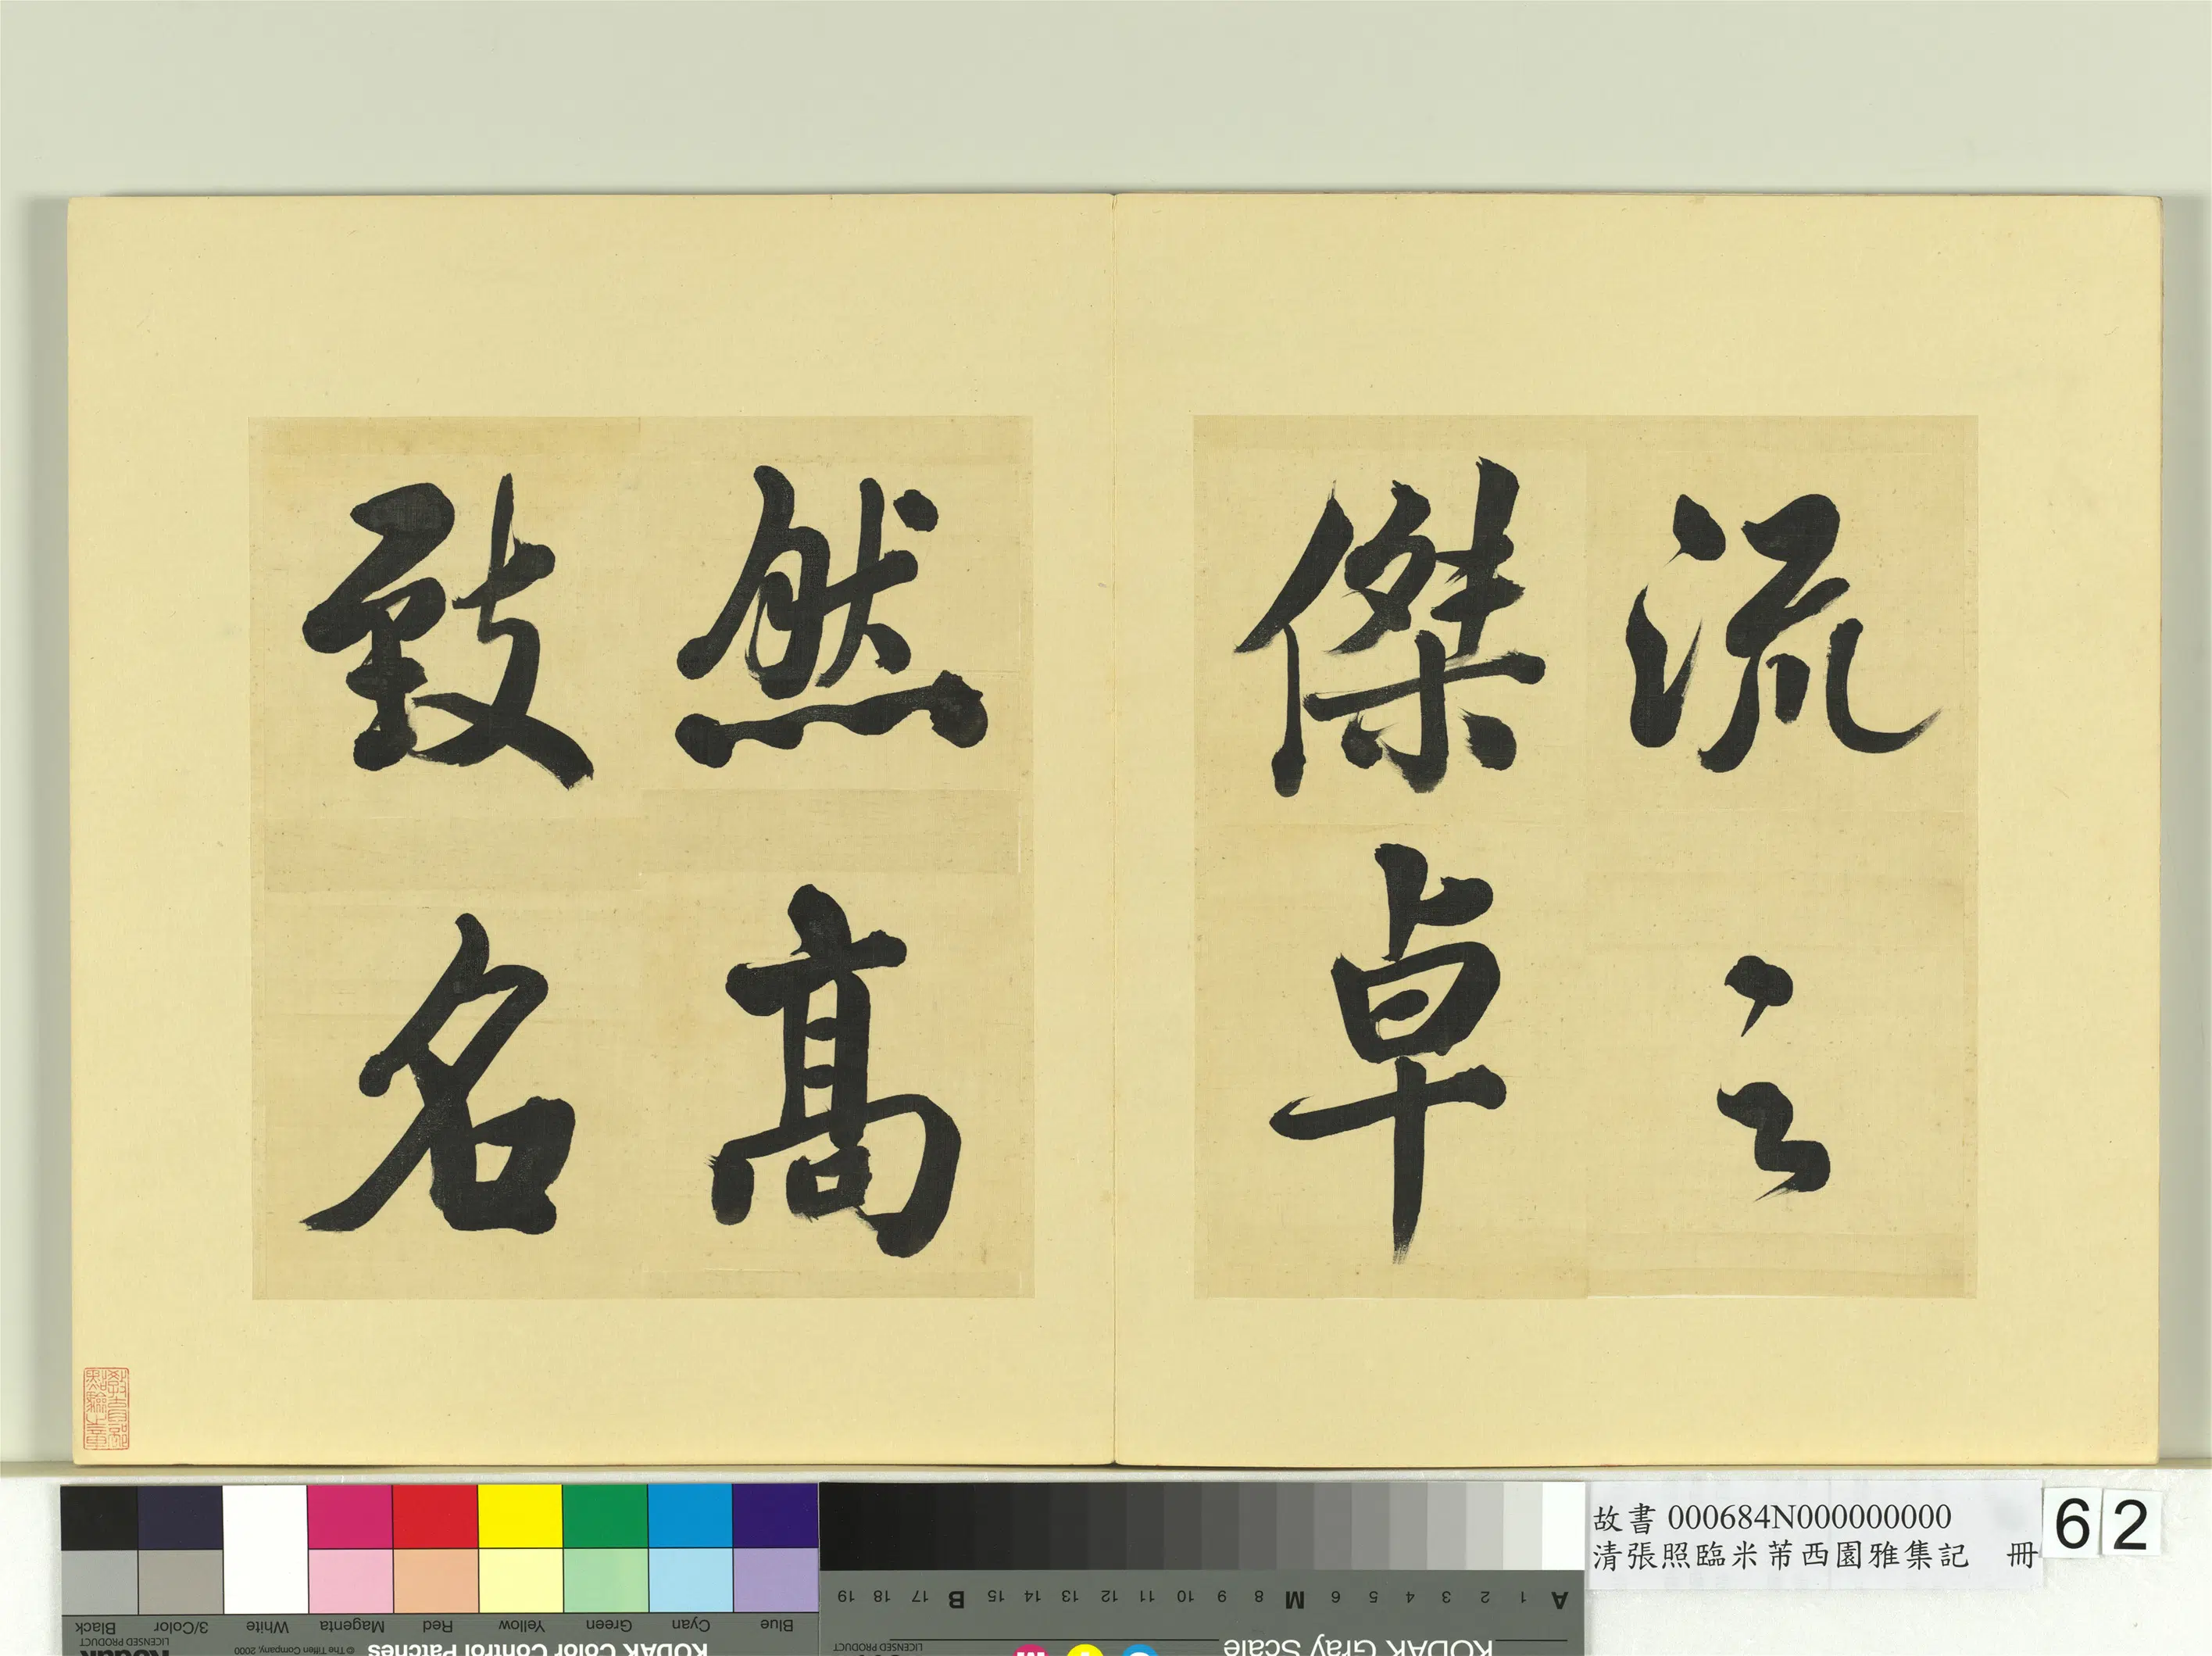 流之
傑卓
然高
致名
教育部
點驗之章
故書 000684N000000000
清張照臨米芾西園雅集記 冊
62
Black 3/Color White Magenta Red Yellow Green Cyan Blue
LICENSED PRODUCT
© The Tiffen Company, 2000
KODAK Color Control Patches
Kodak
A 1 2 3 4 5 6 M 8 9 10 11 12 13 14 15 B 17 18 19
LICENSED PRODUCT
KODAK Gray Scale